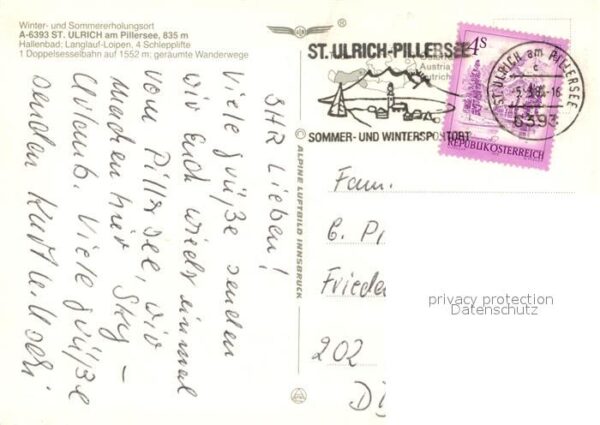 Winter- und Sommererholungsort
A-6393 ST. ULRICH am Pillersee, 835 m
Hallenbad; Langlauf-Loipen, 4 Schlepplifte
1 Doppelsesselbahn auf 1552 m; geräumte Wanderwege
IHR Lieben!
Viele Grüße senden
wir Euch wieder einmal
vom Pillersee, wir
machen hier Sky-
Urlaub. Viele Grüße
senden Kurt
ALPINE LUFTBILD INNSBRUCK
®
ST. ULRICH-PILLERSEE
Austria
SOMMER- UND WINTERSPORTORT
4S
REPUBLIK ÖSTERREICH
ST. ULRICH am PILLERSEE
c
6393
Fam.
G. P
Frieden
202
privacy protection
Datenschutz